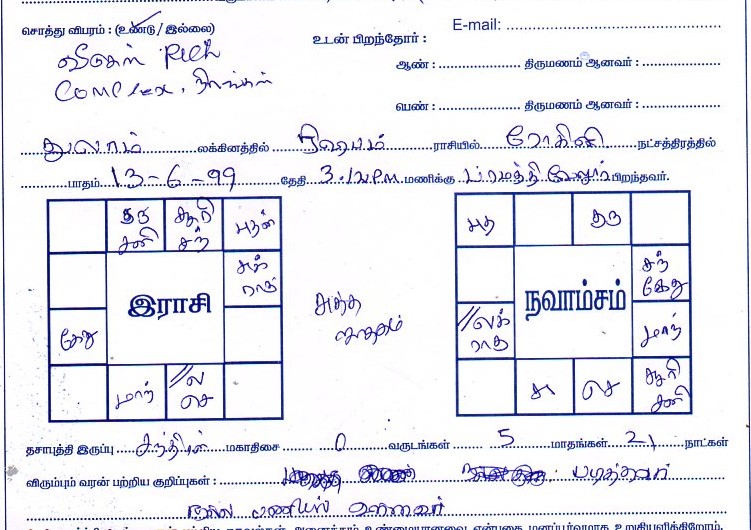 சொத்து விபரம் : (உண்டு / இல்லை)
E-mail:
உடன் பிறந்தோர் :
Rich
Complex,
ஆண் : திருமணம் ஆனவர் :
பெண் : திருமணம் ஆனவர் :
துலாம் லக்கினத்தில் ரிஷபம் ராசியில் ரோகிணி நட்சத்திரத்தில்
பாதம் 13-6-99 தேதி 3.12 PM மணிக்கு பரமத்தி வேலூர் பிறந்தவர்.
குரு சனி
சூரி சந்
புதன்
சுக் ராகு
இராசி
கேது
மாந்
ல செ
சுத்த ஜாதகம்
புத
குரு
சந் கேது
நவாம்சம்
லக் ராகு
மாந்
சு
செ
சூரி சனி
தசாபுத்தி இருப்பு சந்திரன் மகாதிசை 0 வருடங்கள் 5 மாதங்கள் 21 நாட்கள்
விருப்பும் வரன் பற்றிய குறிப்புகள் : படித்தவர்
நல்ல பணியில் உள்ளவர்